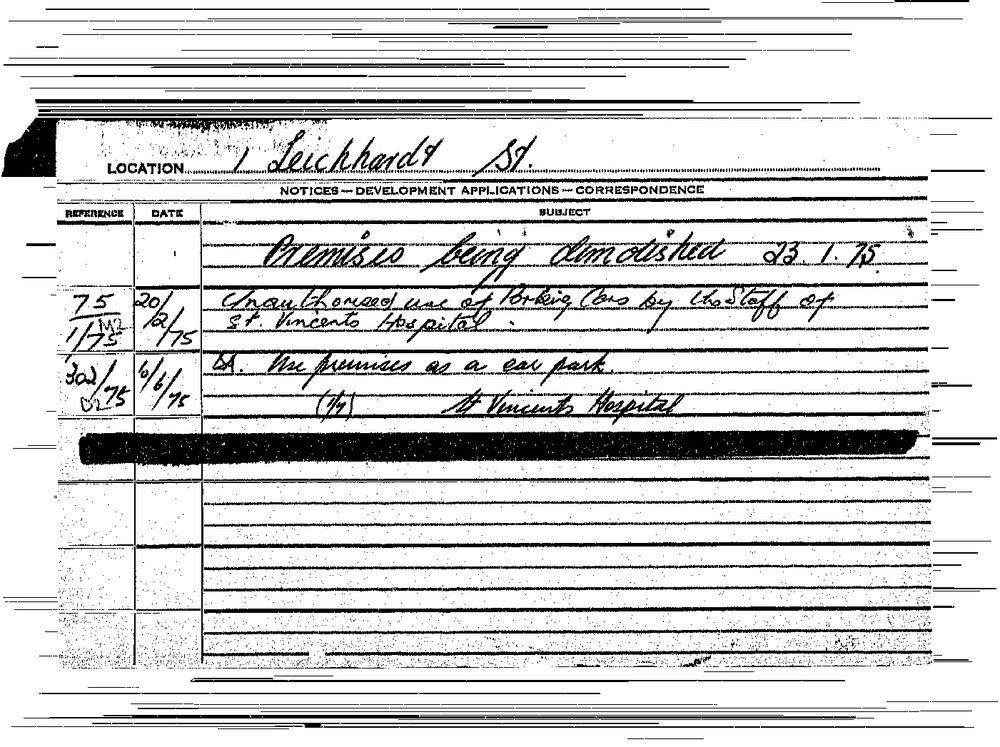 LOCATION 1 Leichhardt St.
NOTICES — DEVELOPMENT APPLICATIONS — CORRESPONDENCE
REFERENCE DATE SUBJECT
Premises being demolished 23.1.75
75 20/2/75 Unauthorised use of Parking Cars by the Staff of
1/75 M2 St. Vincents Hospital.
302/75 6/6/75 DA. Use premises as a car park.
D2 St Vincents Hospital